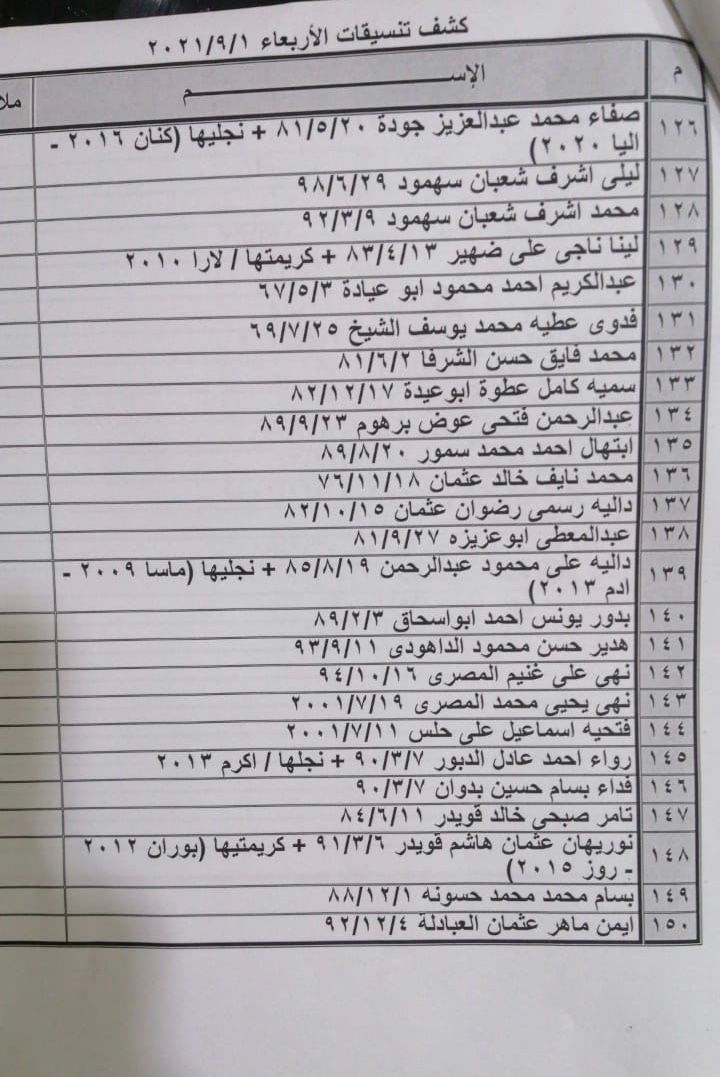 كشف تنسيقات الأربعاء ٢٠٢١/٩/١
م الإســـــــــم ملا
١٢٦ صفاء محمد عبدالعزيز جودة ٨١/٥/٢٠ + نجليها (كنان ٢٠١٦ -
اليا ٢٠٢٠)
١٢٧ ليلى اشرف شعبان سهمود ٩٨/٦/٢٩
١٢٨ محمد اشرف شعبان سهمود ٩٢/٣/٩
١٢٩ لينا ناجى على ضهير ٨٣/٤/١٣ + كريمتها / لارا ٢٠١٠
١٣٠ عبدالكريم احمد محمود ابو عيادة ٦٧/٥/٣
١٣١ فدوى عطيه محمد يوسف الشيخ ٦٩/٧/٢٥
١٣٢ محمد فايق حسن الشرفا ٨١/٦/٢
١٣٣ سميه كامل عطوة ابوعيدة ٨٢/١٢/١٧
١٣٤ عبدالرحمن فتحى عوض برهوم ٨٩/٩/٢٣
١٣٥ ابتهال احمد محمد سمور ٨٩/٨/٢٠
١٣٦ محمد نايف خالد عثمان ٧٦/١١/١٨
١٣٧ داليه رسمى رضوان عثمان ٨٢/١٠/١٥
١٣٨ عبدالمعطى ابوعزيزه ٨١/٩/٢٧
١٣٩ داليه على محمود عبدالرحمن ٨٥/٨/١٩ + نجليها (ماسا ٢٠٠٩ -
ادم ٢٠١٣)
١٤٠ بدور يونس احمد ابواسحاق ٨٩/٢/٣
١٤١ هدير حسن محمود الداهودى ٩٣/٩/١١
١٤٢ نهى على غنيم المصرى ٩٤/١٠/١٦
١٤٣ نهى يحيى محمد المصرى ٢٠٠١/٧/١٩
١٤٤ فتحيه اسماعيل على حلس ٢٠٠١/٧/١١
١٤٥ رواء احمد عادل الدبور ٩٠/٣/٧ + نجلها / اكرم ٢٠١٣
١٤٦ فداء بسام حسين بدوان ٩٠/٣/٧
١٤٧ تامر صبحى خالد قويدر ٨٤/٦/١١
١٤٨ نوريهان عثمان هاشم قويدر ٩١/٣/٦ + كريمتيها (بوران ٢٠١٢
- روز ٢٠١٥)
١٤٩ بسام محمد محمد حسونه ٨٨/١٢/١
١٥٠ ايمن ماهر عثمان العبادلة ٩٢/١٢/٤